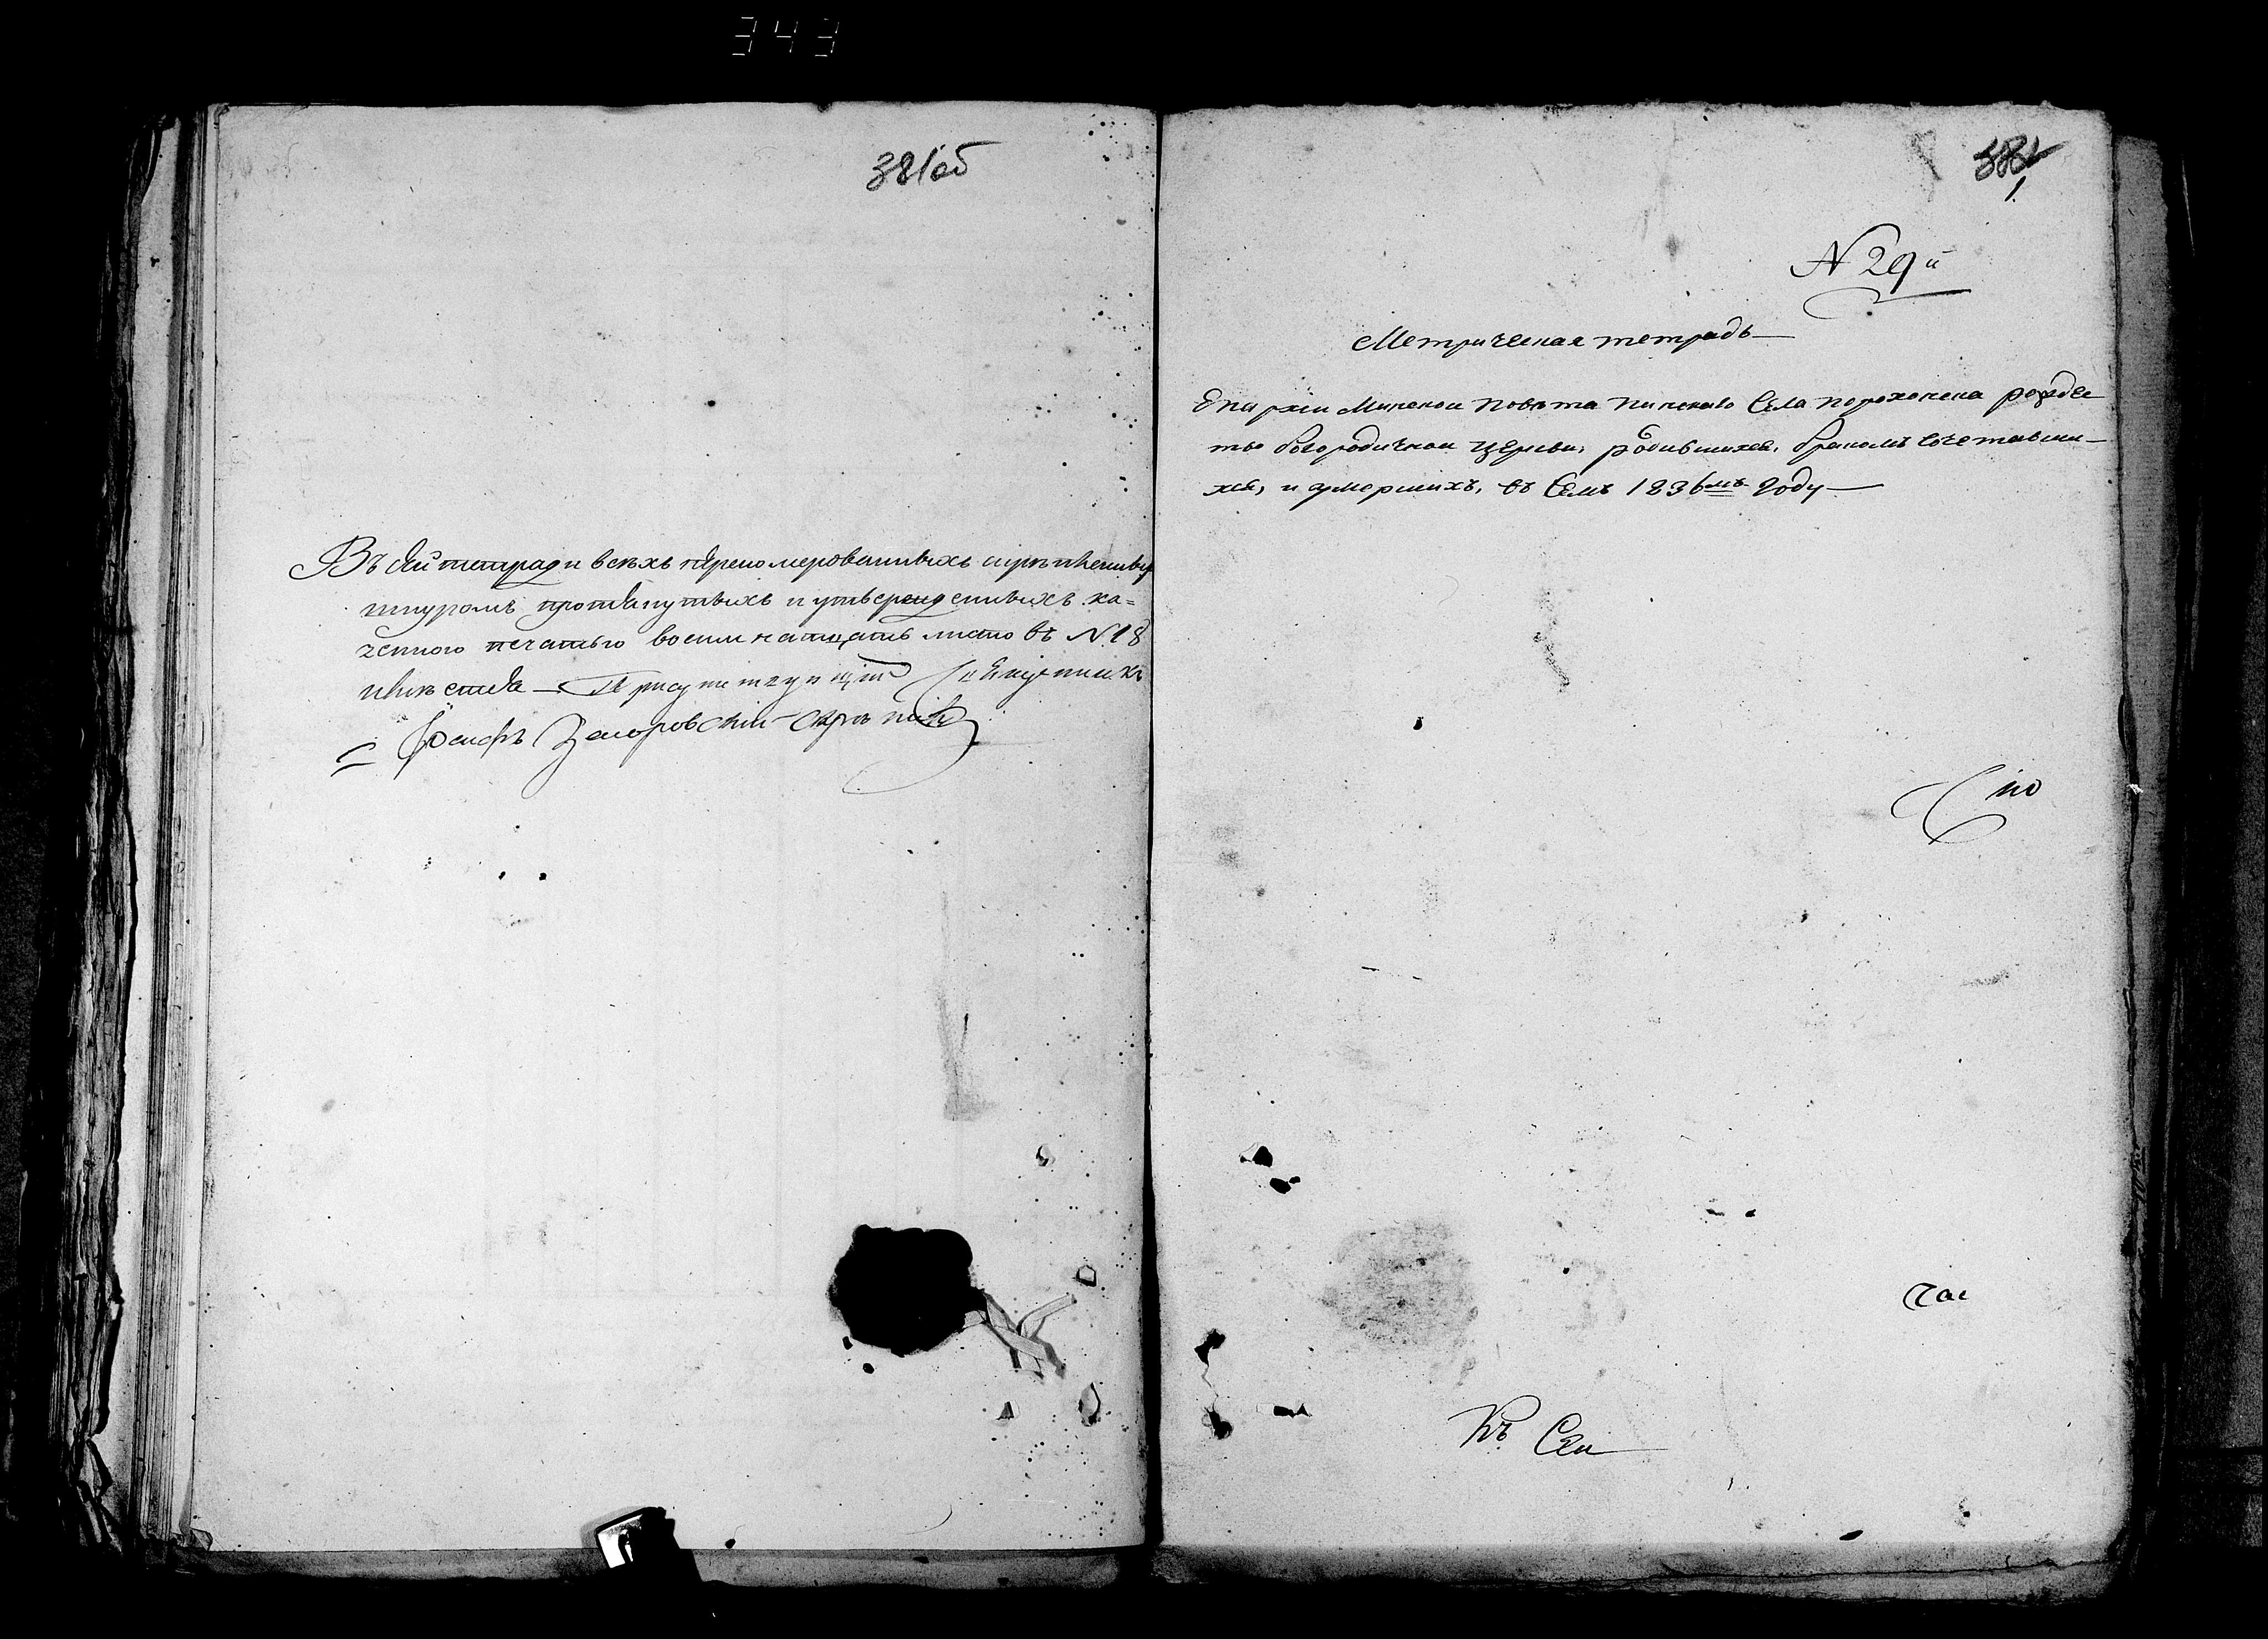 343
381об
Въ сей тетради всехъ перепомерованныхъ скрепленныхъ
шнуромъ протянутыхъ и утвержденныхъ ка=
зенною печатью восимнатцать листовъ N. 18
Присутствующій
Іосифъ скрепил
1
N 29й
Метрическая тетрадь
Епархіи Минской Повѣта Пинскаго Села Порохонска рождес
тво богородичной Церкви, родившихся, бракомъ сочетавши-
хся, и умершихъ, въ Семъ 1836мъ Году
Сію
Къ Сей